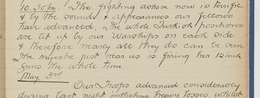 10.30 p.m. The fighting ashore now is terrific
& by the sounds & appearances our fellows
have advanced. The whole Turkish positions
are lit up by our Warships on each side
& therefore nearly all they do can be seen
The majestic just near us is firing her 12 inch
guns the whole time
May 3rd
Our Troops advanced considerably
during last night inflicting heavy losses whilst